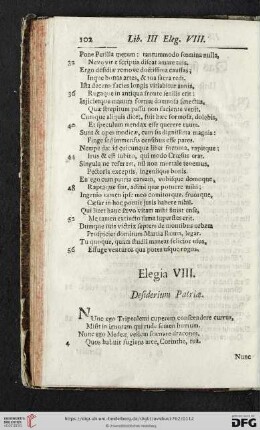 102 Lib. III Eleg. VIII.
Pone Perilla metum: tantummodo femina nulla,
32 Neve vir e scriptis discat amare tuis.
Ergo desidiæ remove doctissima causas;
Inque bonas artes, & tua sacra redi.
Ista decens facies longis vitiabitur annis,
36 Rugaque in antiqua fronte senilis erit:
Injicietque manum formæ damnosa senectus,
Quæ strepitum passu non faciente venit.
Cumque aliquis dicet, fuit hæc formosa, dolebis,
Et speculum mendax esse querere tuum.
Sunt tibi opes modicæ, cum sis dignissima magnis:
Finge sed immensis censibus esse pares.
Nempe dat id cuicunque libet fortuna, rapitque:
44 Irus & est subito, qui modo Crœsus erat.
Singula ne referam, nil non mortale tenemus,
Pectoris exceptis, ingeniique bonis.
En ego cum patria caream, vobisque domoque,
48 Raptaque sint, adimi quæ potuere mihi;
Ingenio tamen ipse meo comitorque, fruorque,
Cæsar in hoc potuit juris habere nihil.
Quilibet hanc sævo vitam mihi finiat ense,
52 Me tamen extincto fama superstes erit.
Dumque suis victrix septem de montibus orbem
Prospiciet domitum Martia Roma, legar.
Tu quoque, quam studii maneat felicior usus,
56 Effuge venturos qua potes usque rogos.
Elegia VIII.
Desiderium Patriæ.
Nunc ego Triptolemi cuperem conscendere currus,
Misit in ignotam qui rude semen humum.
Nunc ego Medeæ vellem frænare dracones,
4 Quos habuit fugiens arce, Corinthe, tua.
Nunc
DFG